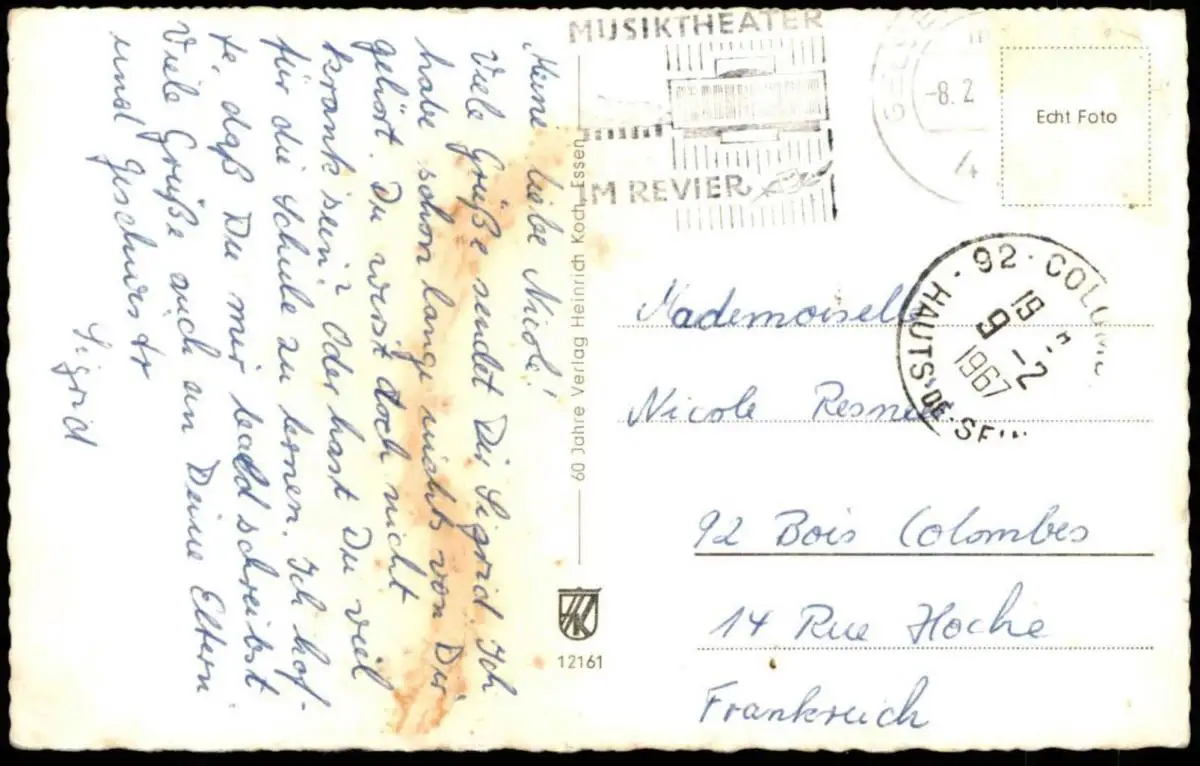 Meine liebe Nicole!
Viele Grüße sendet Dir Sigrid. Ich
habe schon lange nichts von Dir
gehört. Du wirst doch nicht
krank sein? Oder hast Du viel
für die Schule zu lernen. Ich hof-
fe, daß Du mir bald schreibst
Viele Grüße auch an Deine Eltern
und Geschwister
Sigrid
60 Jahre Verlag Heinrich Koch, Essen
12161
MUSIKTHEATER
IM REVIER
-8.2
4
Echt Foto
92 · COLOM
19 H
9 -2
1967
HAUTS-DE-SE
Mademoiselle
Nicole
92 Bois Colombes
14 Rue Hoche
Frankreich